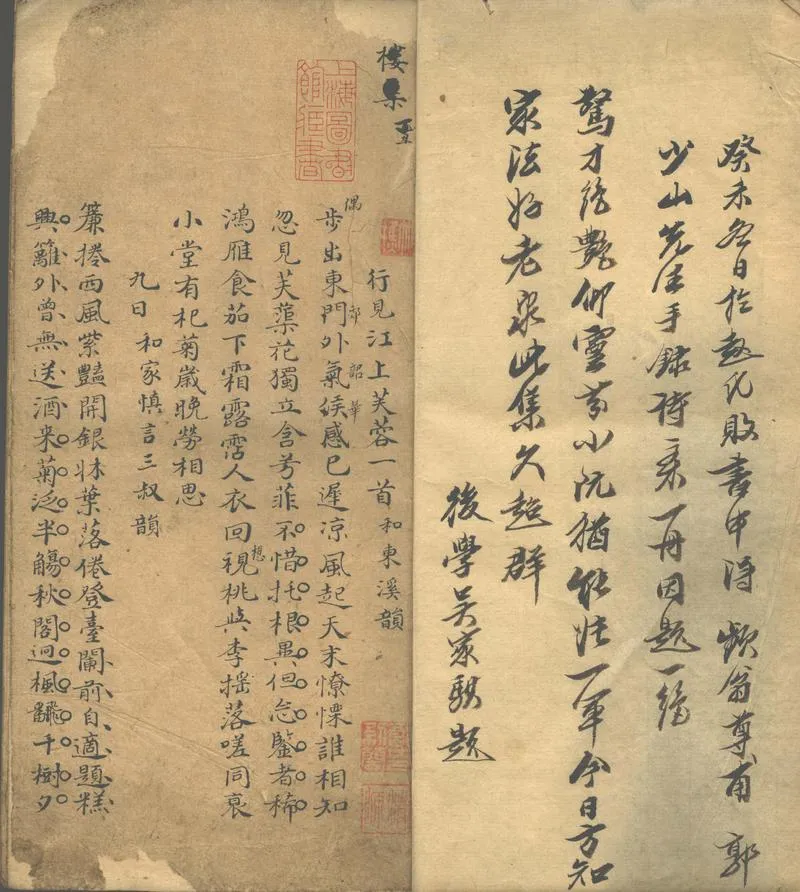 癸未冬日於敝書中得 頻翁尊甫 郭
少山先生手錄詩一冊因題一絕
驚才絕艷仰靈芬小阮猶能壯一軍今日方知
家法好老泉此集久超群
後學吳家騏題
樓集
上海圖書館藏書
行見江上芙蓉一首和東溪韻
偶一
步出東門外氣候感已遲凉風起天末憭慄誰相知
郭
忽見芙蕖花獨立含芳菲不惜托根異但怨鑒者稀
鴻雁食茄下霜露霑人衣回視桃與李摇落嗟同衰
想
小堂有杞菊歲晚勞相思
九日 和家慎言三叔韻
簾捲西風紫豔開銀牀葉落倦登臺闌前自適題糕
興籬外曾無送酒来菊泛半觴秋閣迥楓飜千樹夕